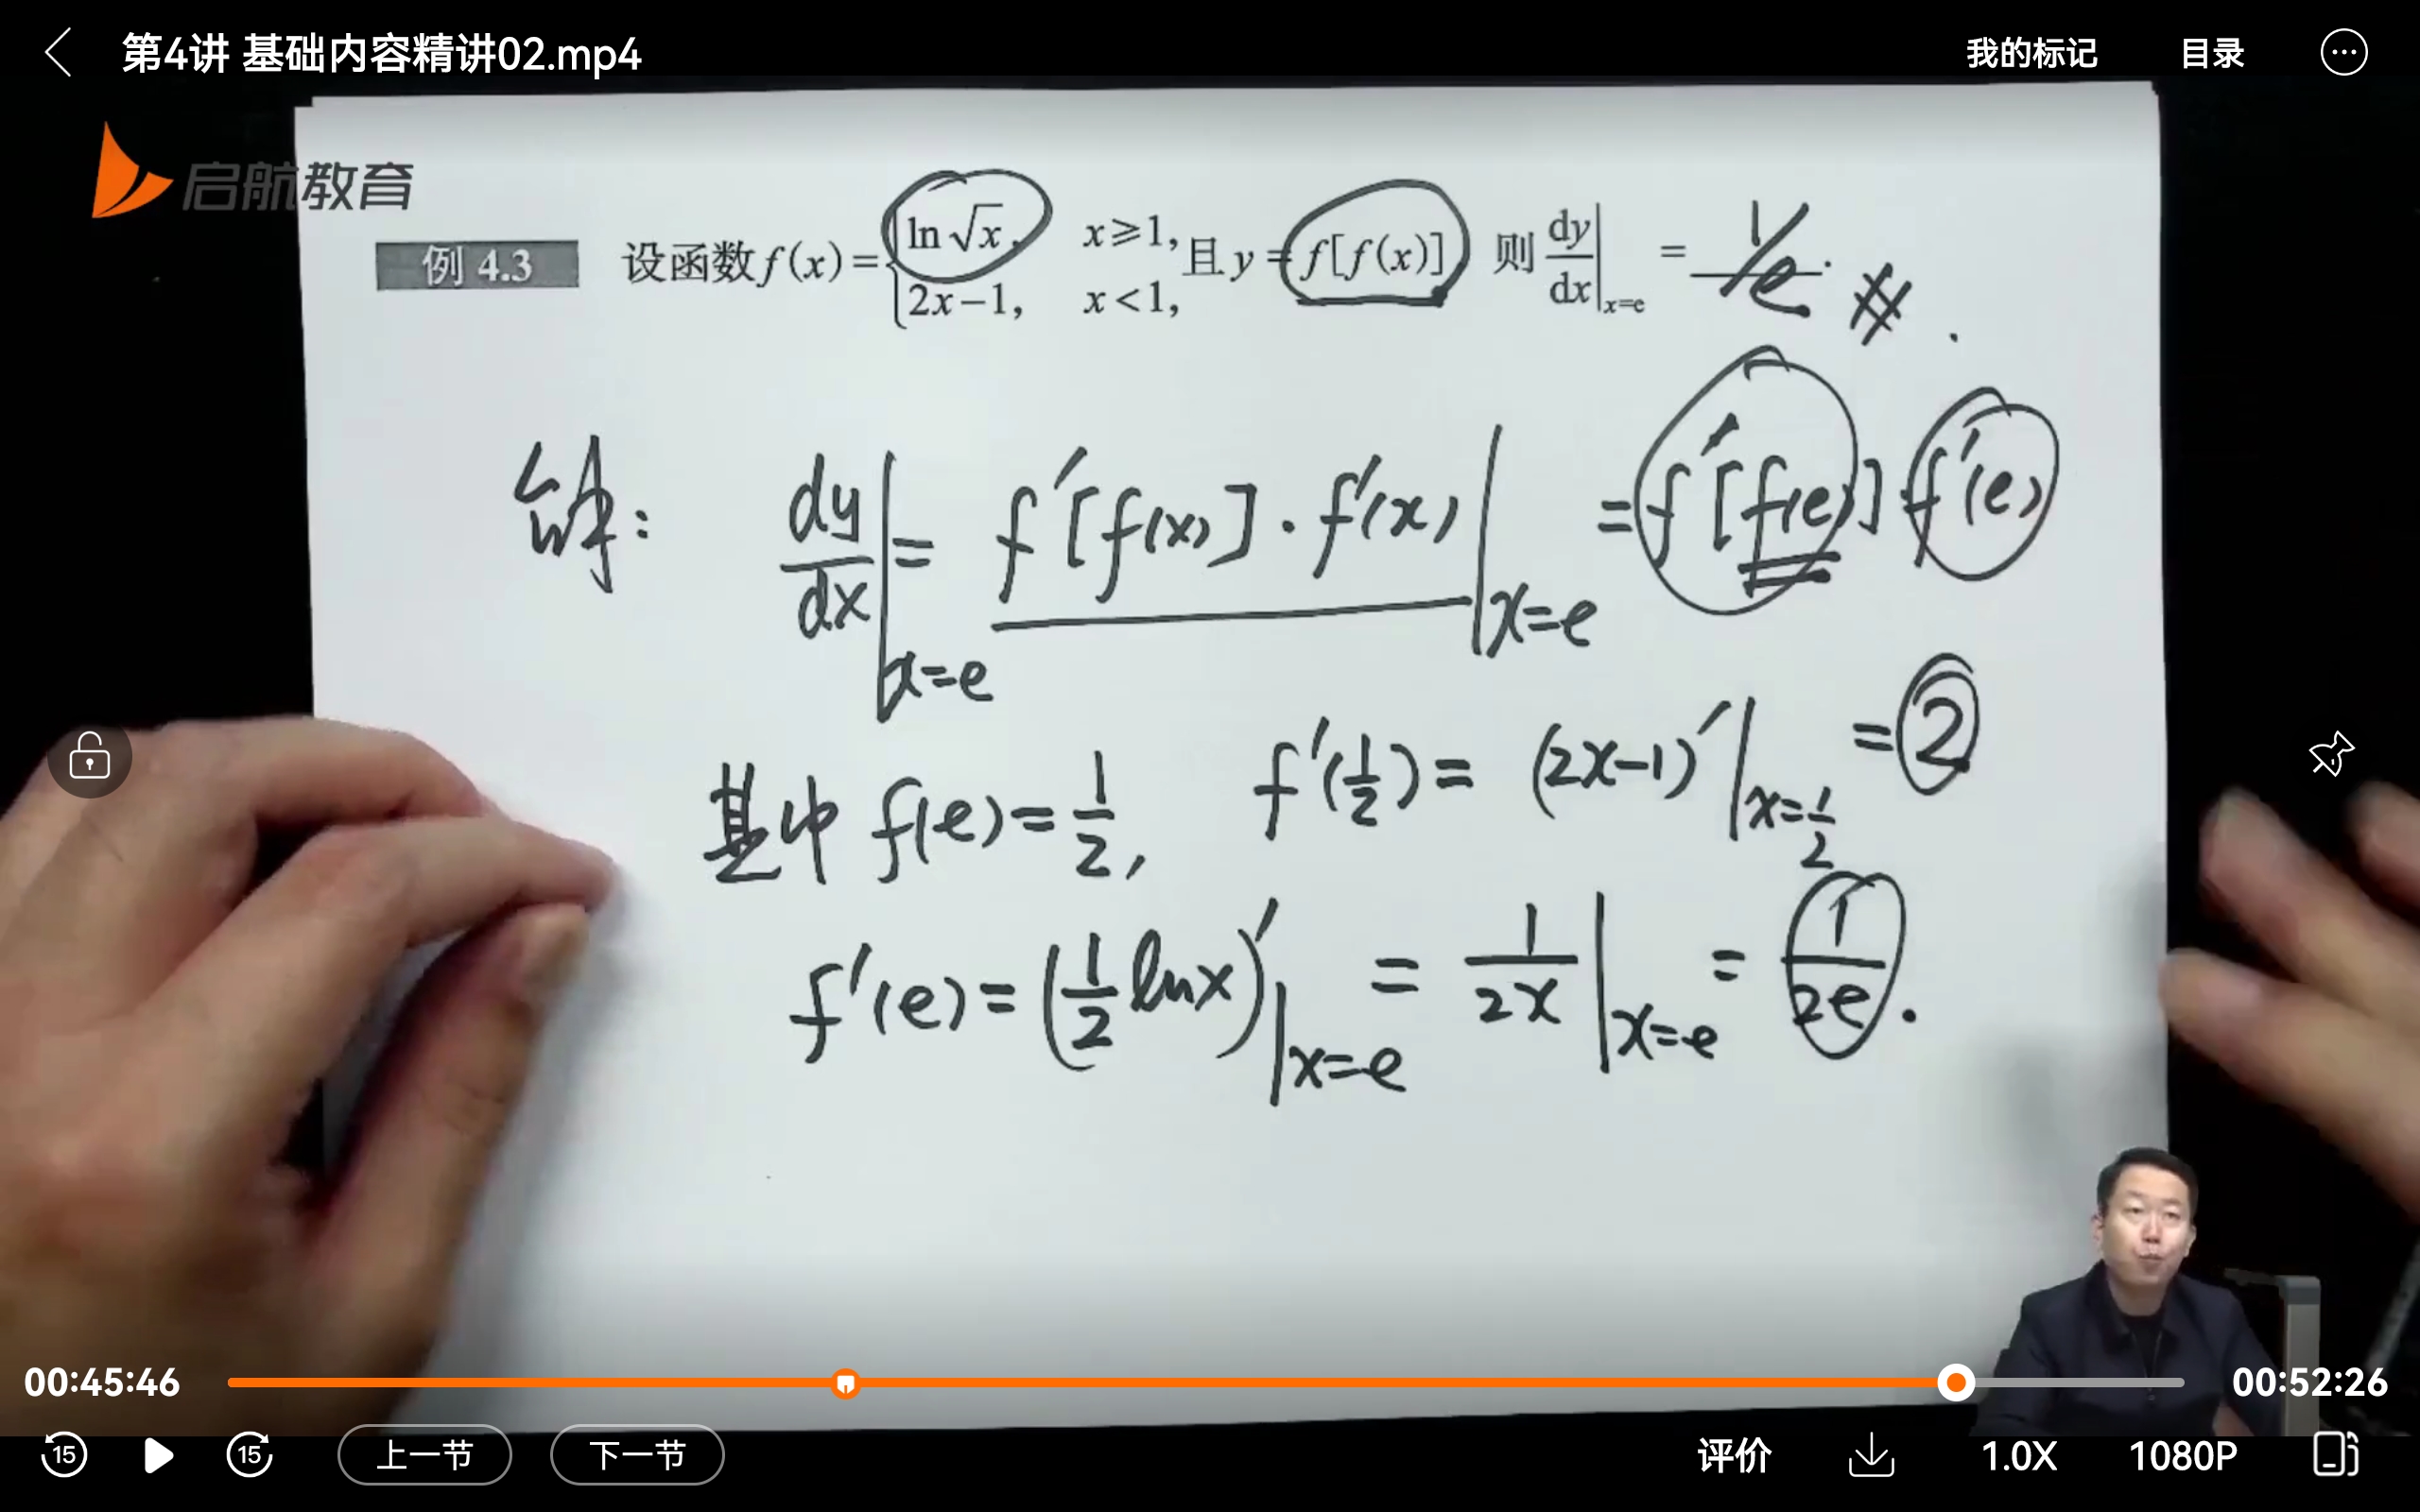 第4讲 基础内容精讲02.mp4 我的标记 目录
启航教育
例 4.3 设函数f(x)={ln√x, x⩾1, 2x−1, x<1, 且y=f[f(x)] 则 dy/dx|x=e = 1/e. #
解: dy/dx|x=e = f′[f(x)]·f′(x)|x=e = f′[f(e)] f′(e)
其中 f(e)=1/2, f′(1/2)=(2x−1)′|x=1/2 =2
f′(e)=(1/2 lnx)′|x=e = 1/2x|x=e = 1/2e.
00:45:46 00:52:26
15 15 上一节 下一节 评价 1.0X 1080P